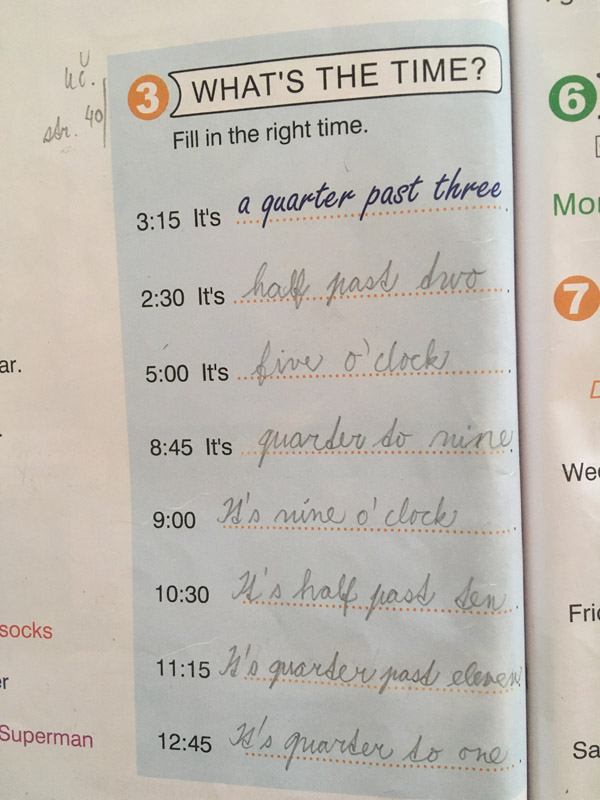 uč.
str. 40
3 WHAT'S THE TIME?
Fill in the right time.
3:15 It's a quarter past three.
2:30 It's half past two.
5:00 It's five o'clock.
8:45 It's quarter to nine.
9:00 It's nine o'clock.
10:30 It's half past ten.
11:15 It's quarter past eleven.
12:45 It's quarter to one.
ar.
socks
Superman
6
7
Fri
Sa